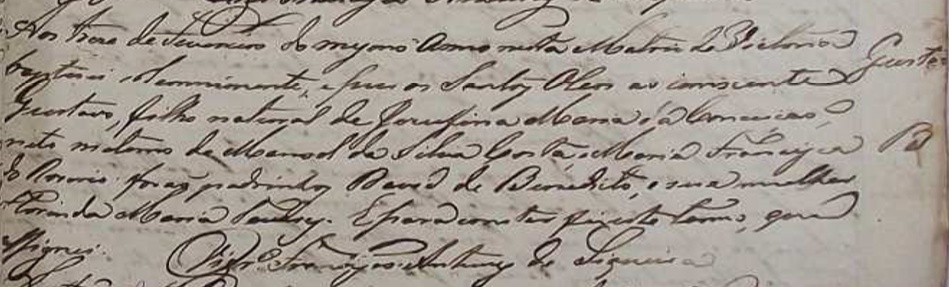 Aos treze de Fevereiro do mesmo Anno nesta Matriz da Victoria
baptisei solemnemente, e puz os Santos Oleos ao innocente
Gustavo, filho natural de Josefina Maria da Conceicaõ,
neto materno de Manoel da Silva Costa, e Maria Francisca
do Rosario: foraõ padrinhos David de Benedito, e sua mulher
Florinda Maria. E para constar fiz este termo, que
assignei.
Vigr.º Antunes de Siqueira
Guste
B